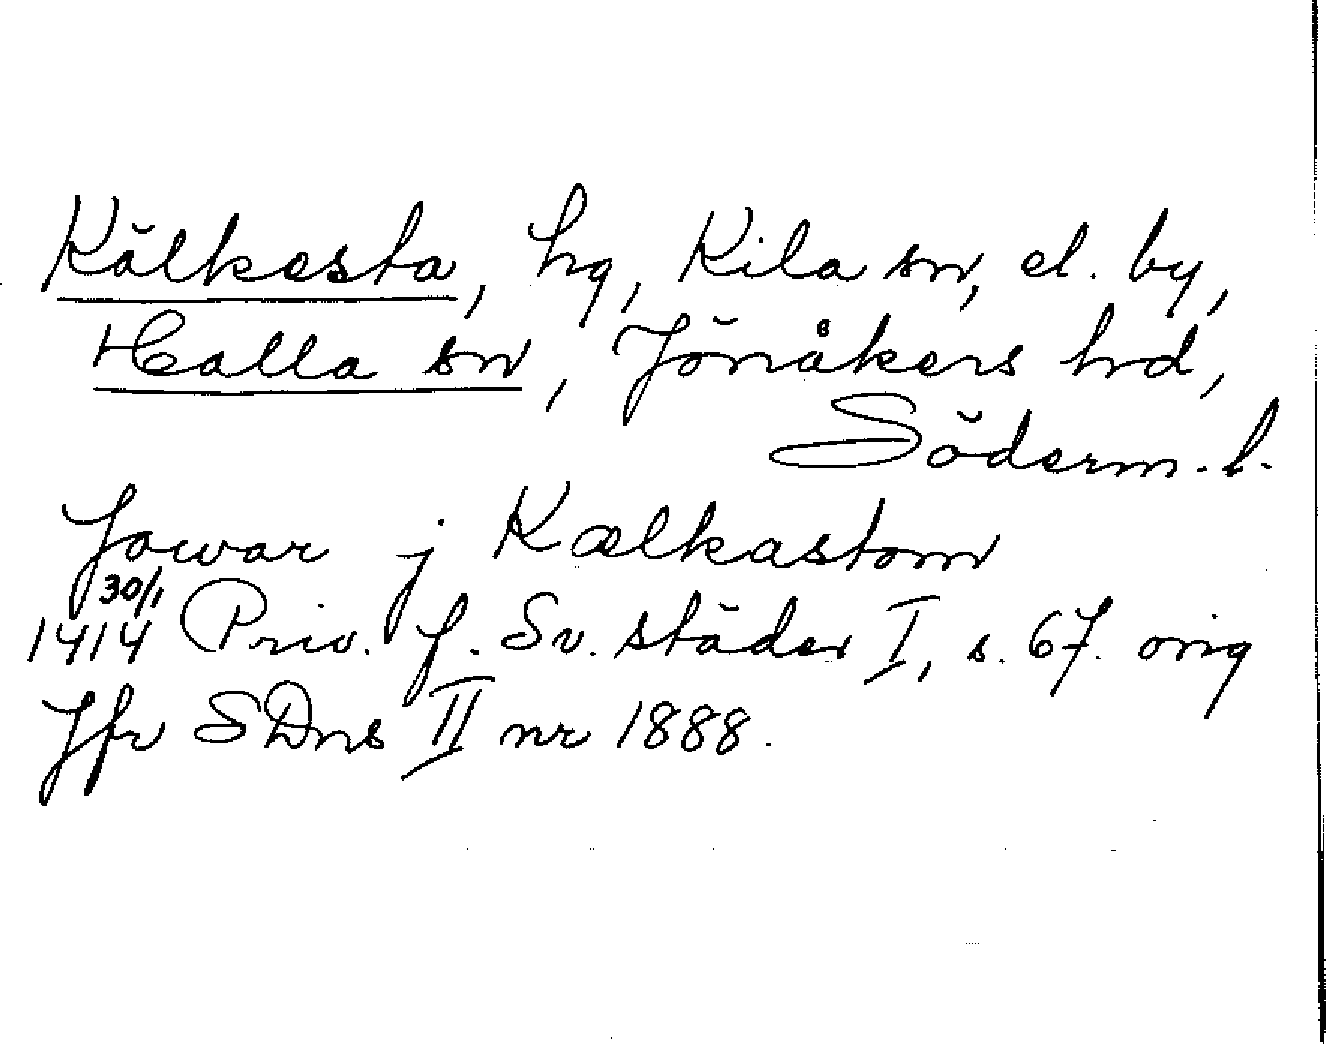 Kälkesta, hg, Kila sn, el. by,
Halla sn, Jönåkers hd,
Söderm. l.
Jowar j Kælkastom
30/1
1414 Priv. f. Sv. städer I, s. 67. orig
Jfr SDns II nr 1888.